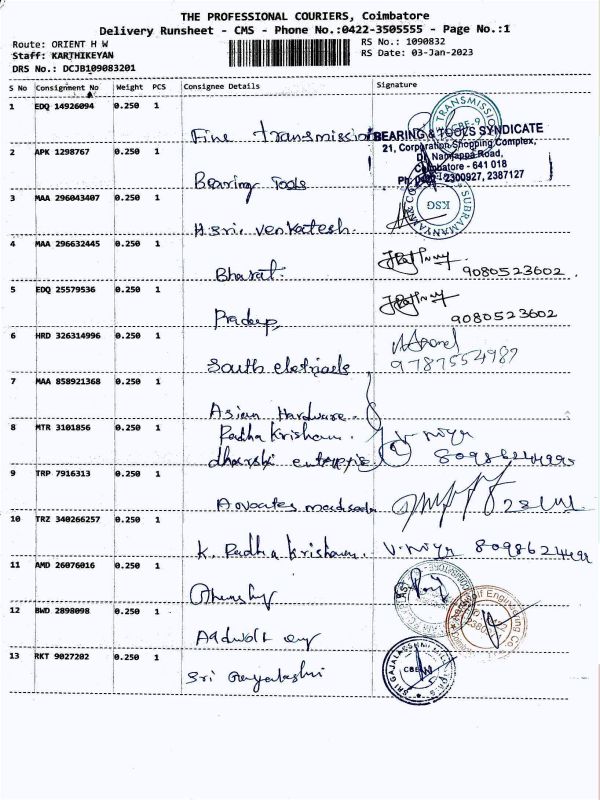 THE PROFESSIONAL COURIERS, Coimbatore
Delivery Runsheet - CMS - Phone No.:0422-3505555 - Page No.:1
Route: ORIENT H W
RS No.: 1090832
Staff: KARTHIKEYAN
RS Date: 03-Jan-2023
DRS No.: DCJB109083201
S No Consignment No Weight PCS Consignee Details Signature
1 EDQ 14926094 0.250 1 Fine transmission
TRANSMISSION
CBE-9
BEARING & TOOLS SYNDICATE
21, Corporation Shopping Complex,
Dr. Nanjappa Road,
Coimbatore - 641 018
Ph: 0422 - 2300927, 2387127
2 APK 1298767 0.250 1 Bearing Tools
3 MAA 296043407 0.250 1 H.Sri. Venkatesh.
KSG
SUBRAMANYA
4 MAA 296632445 0.250 1 Bharat. 9080523602.
5 EDQ 25579536 0.250 1 Pradeep 9080523602
6 HRD 326314996 0.250 1 South eletricals
7 MAA 858921368 0.250 1 Asian Hardware.
8 MTR 3101856 0.250 1 Radha Krishnan.
9 TRP 7916313 0.250 1
10 TRZ 340266257 0.250 1 K. Radha Krishnan. V. 
11 AMD 26076016 0.250 1
12 BWD 2898098 0.250 1
Engineering Co
13 RKT 9027202 0.250 1 Sri
SRI GAJALAKSHMI MILL
CBE